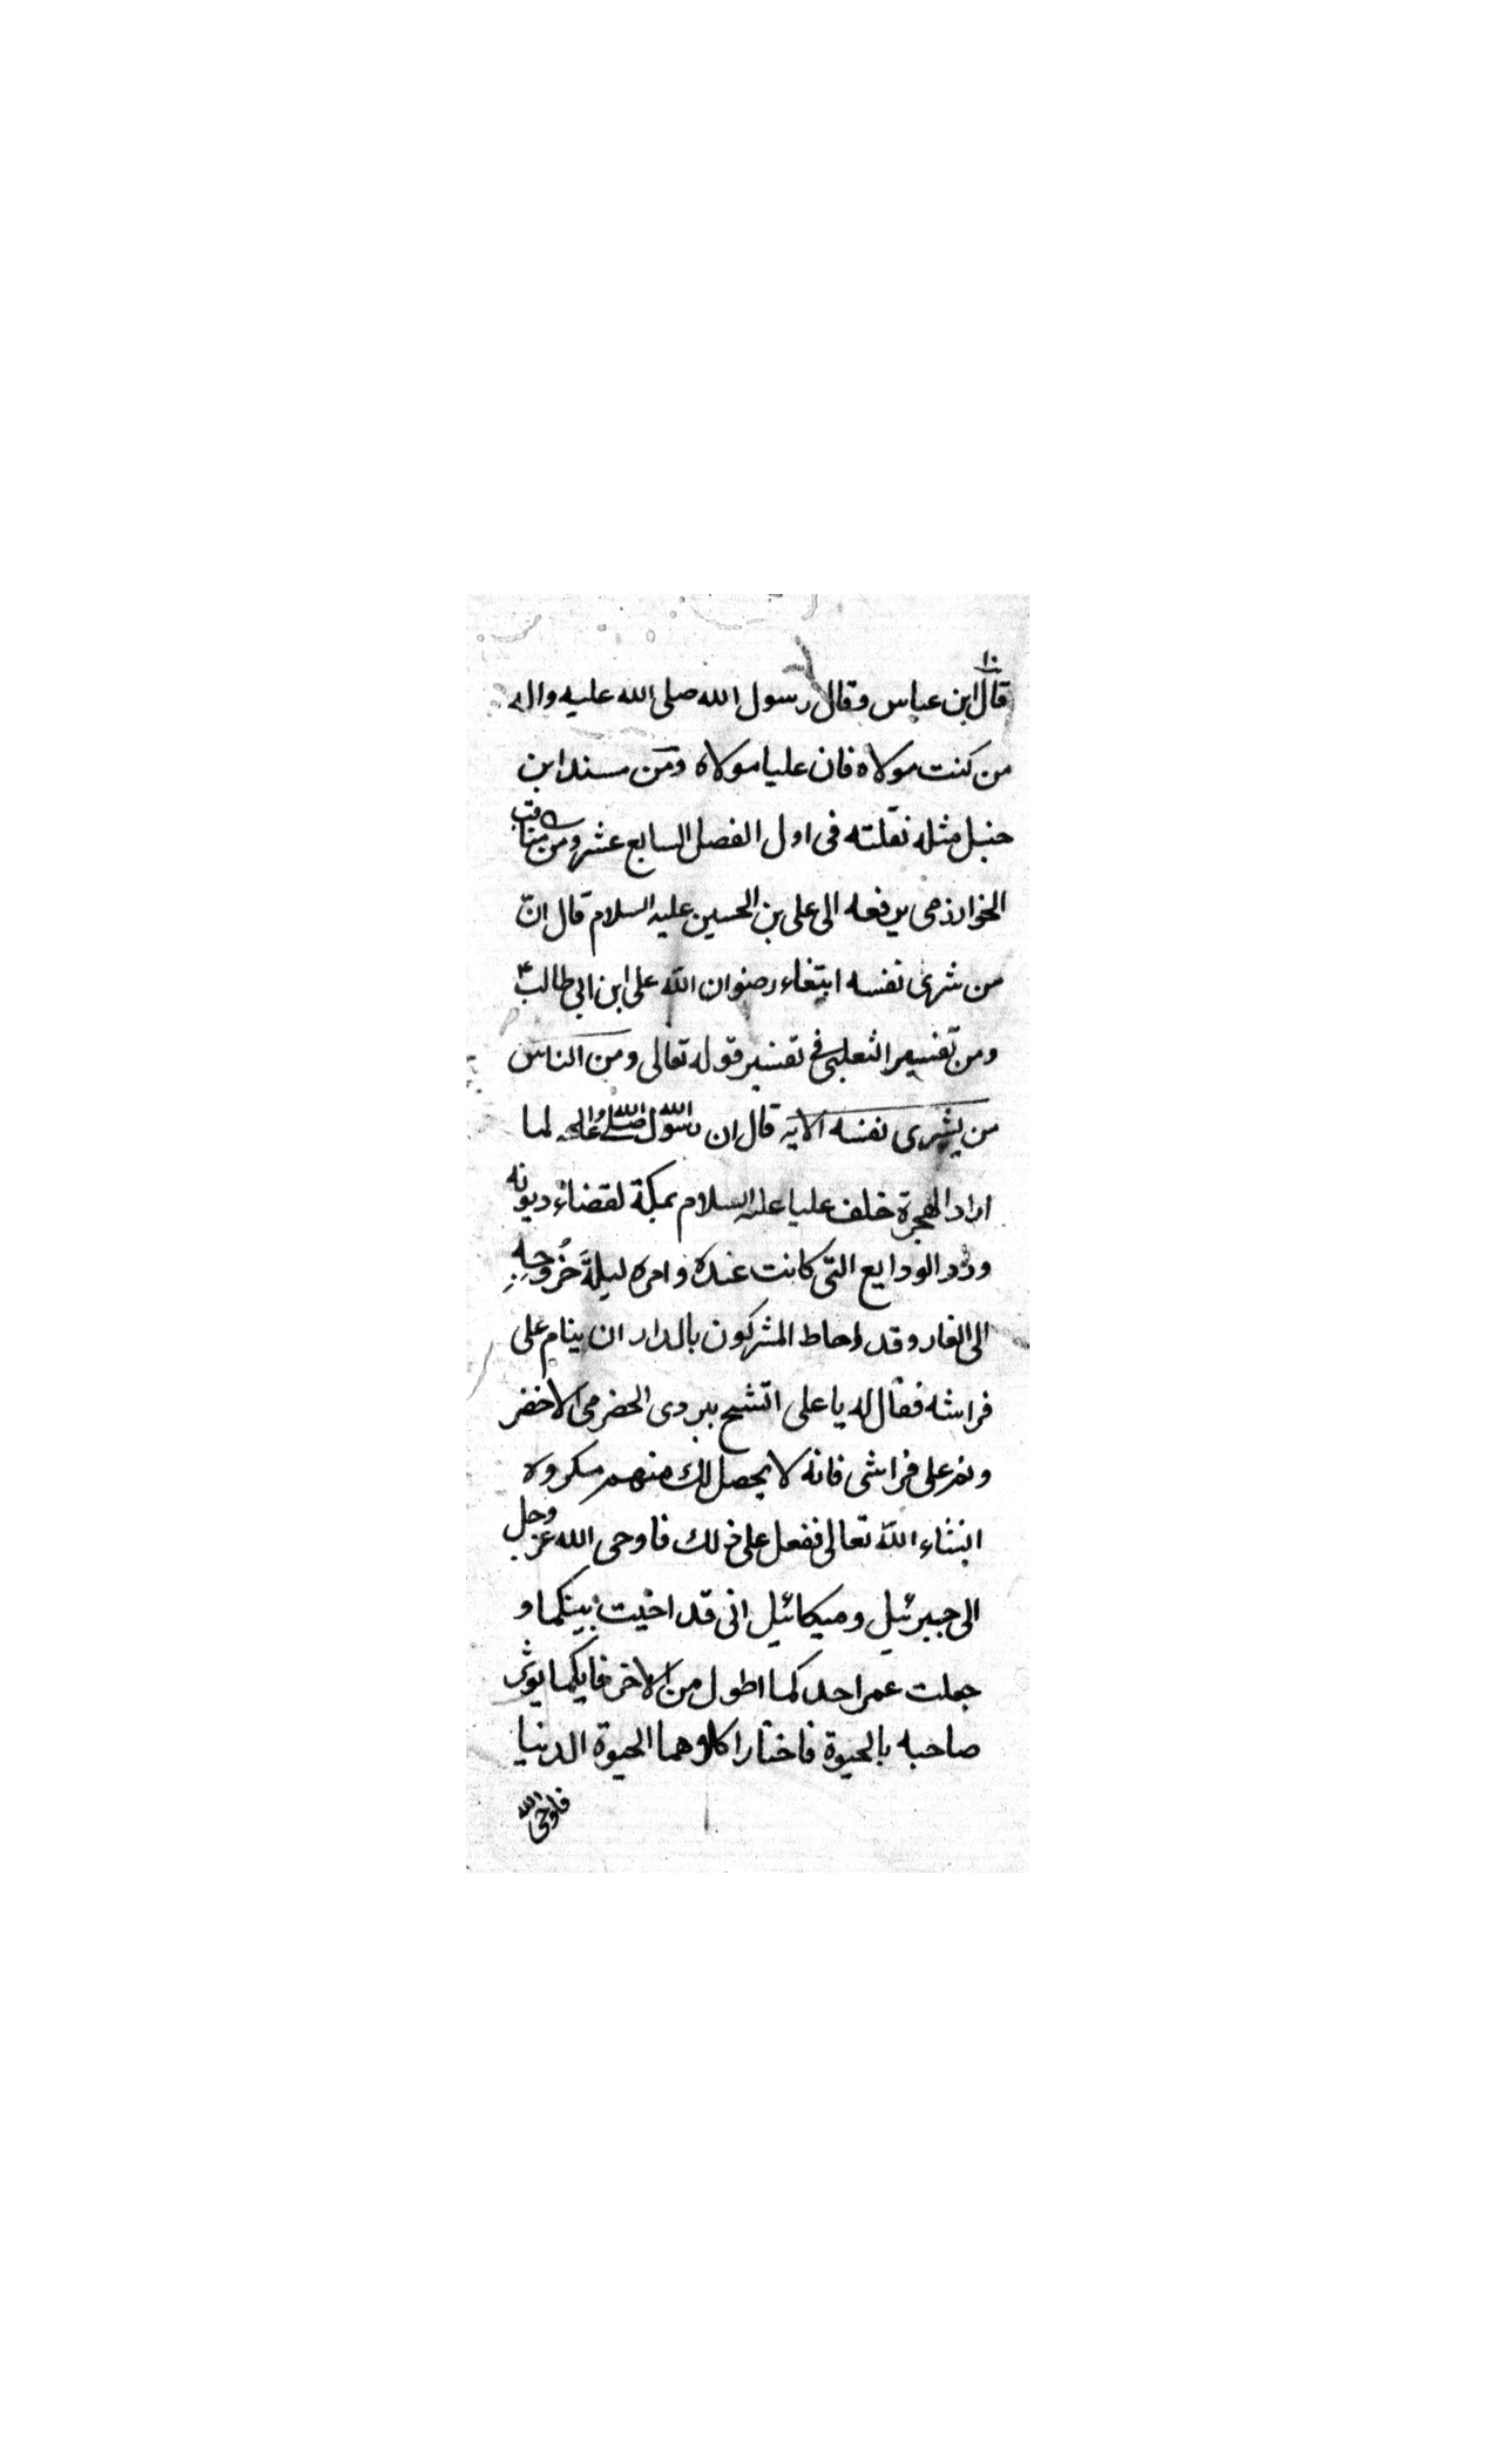 ١٠
قال ابن عباس وقال رسول الله صلى الله عليه واله
من كنت مولاه فان عليا مولاه ومن مسند ابن
حنبل مثله نقلته فى اول الفصل السابع عشر ومن مناقب
الخوارزمى يرفعه الى على بن الحسين عليه السلام قال انّ
من شرى نفسه ابتغاء رضوان الله على ابن ابى طالب ع
ومن تفسير الثعلبى فى تفسير قوله تعالى ومن الناس
من يشرى نفسه الايه قال ان رسول الله صلى الله عليه واله لما
اراد الهجرة خلف عليا عليه السلام بمكة لقضاء ديونه
وردد الودايع التى كانت عنده وامره ليلةَ خُروجِهِ
الى الغار وقد احاط المشركون بالدار ان ينام على
فراشه فقال له يا على اتشح ببردى الحضرمى الاخضر
ونم على فراشى فانه لا يحصل لك منهم مكروه
انشاء الله تعالى ففعل على ذلك فاوحى الله عز وجل
الى جبرئيل وميكائيل انى قد اخيت بينكما و
جعلت عمر احدكما اطول من الاخر فايكما يوثر
صاحبه بالحيوة فاختارا كلاهما الحيوة الدنيا
فاوحى الله